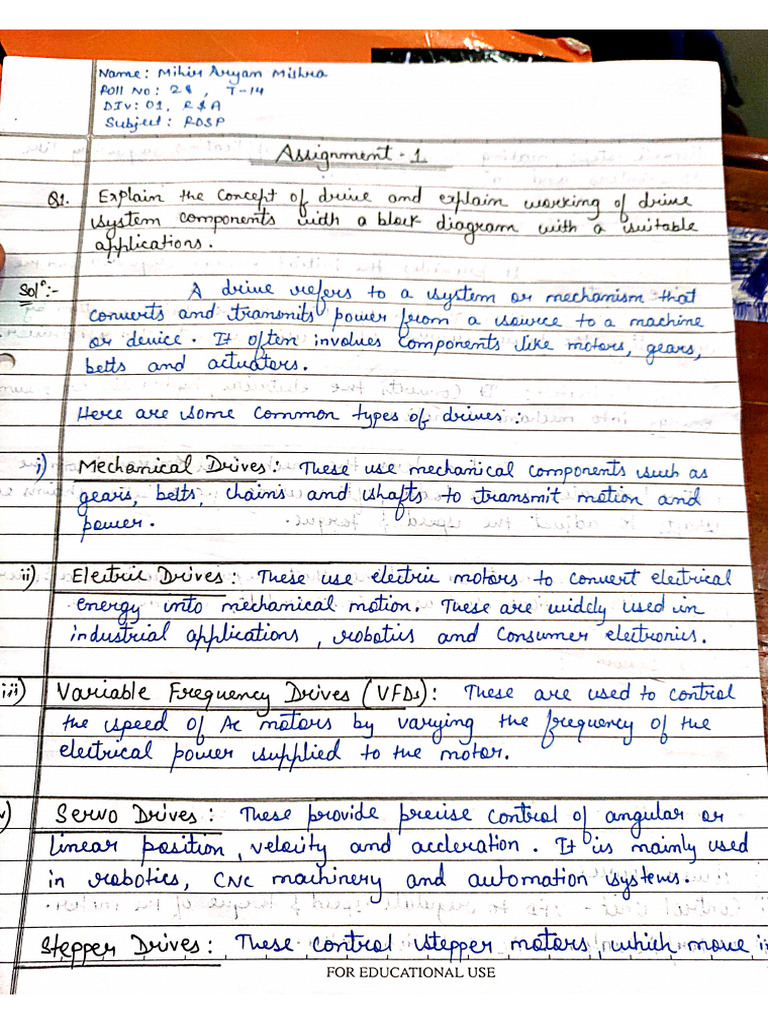 Name: Mihir Aryan Mishra
Roll No: 28, T-14
DIV: 01, R&A
Subject: RDSP
Assignment - 1
Q1. Explain the concept of drive and explain working of drive
system components with a block diagram with a suitable
applications.
Solⁿ:- A drive refers to a system or mechanism that
converts and transmits power from a source to a machine
or device. It often involves components like motors, gears,
belts and actuators.
Here are some common types of drives:
i) Mechanical Drives: These use mechanical components such as
gears, belts, chains and shafts to transmit motion and
power.
ii) Electric Drives: These use electric motors to convert electrical
energy into mechanical motion. These are widely used in
industrial applications, robotics and consumer electronics.
iii) Variable Frequency Drives (VFDs): These are used to control
the speed of AC motors by varying the frequency of the
electrical power supplied to the motor.
v) Servo Drives: These provide precise control of angular or
linear position, velocity and accleration. It is mainly used
in robotics, CNC machinery and automation systems.
Stepper Drives: These control stepper motors, which move i
FOR EDUCATIONAL USE